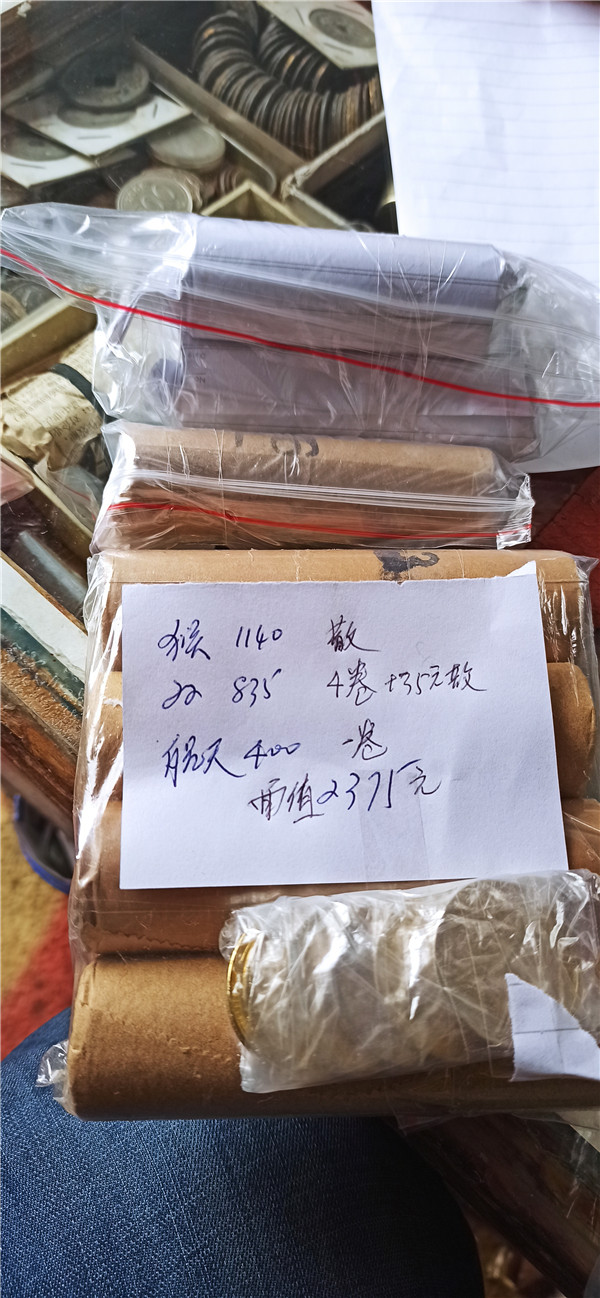 猴 1140 散
双 835 4卷+35元散
航天 400 一卷
面值2375元